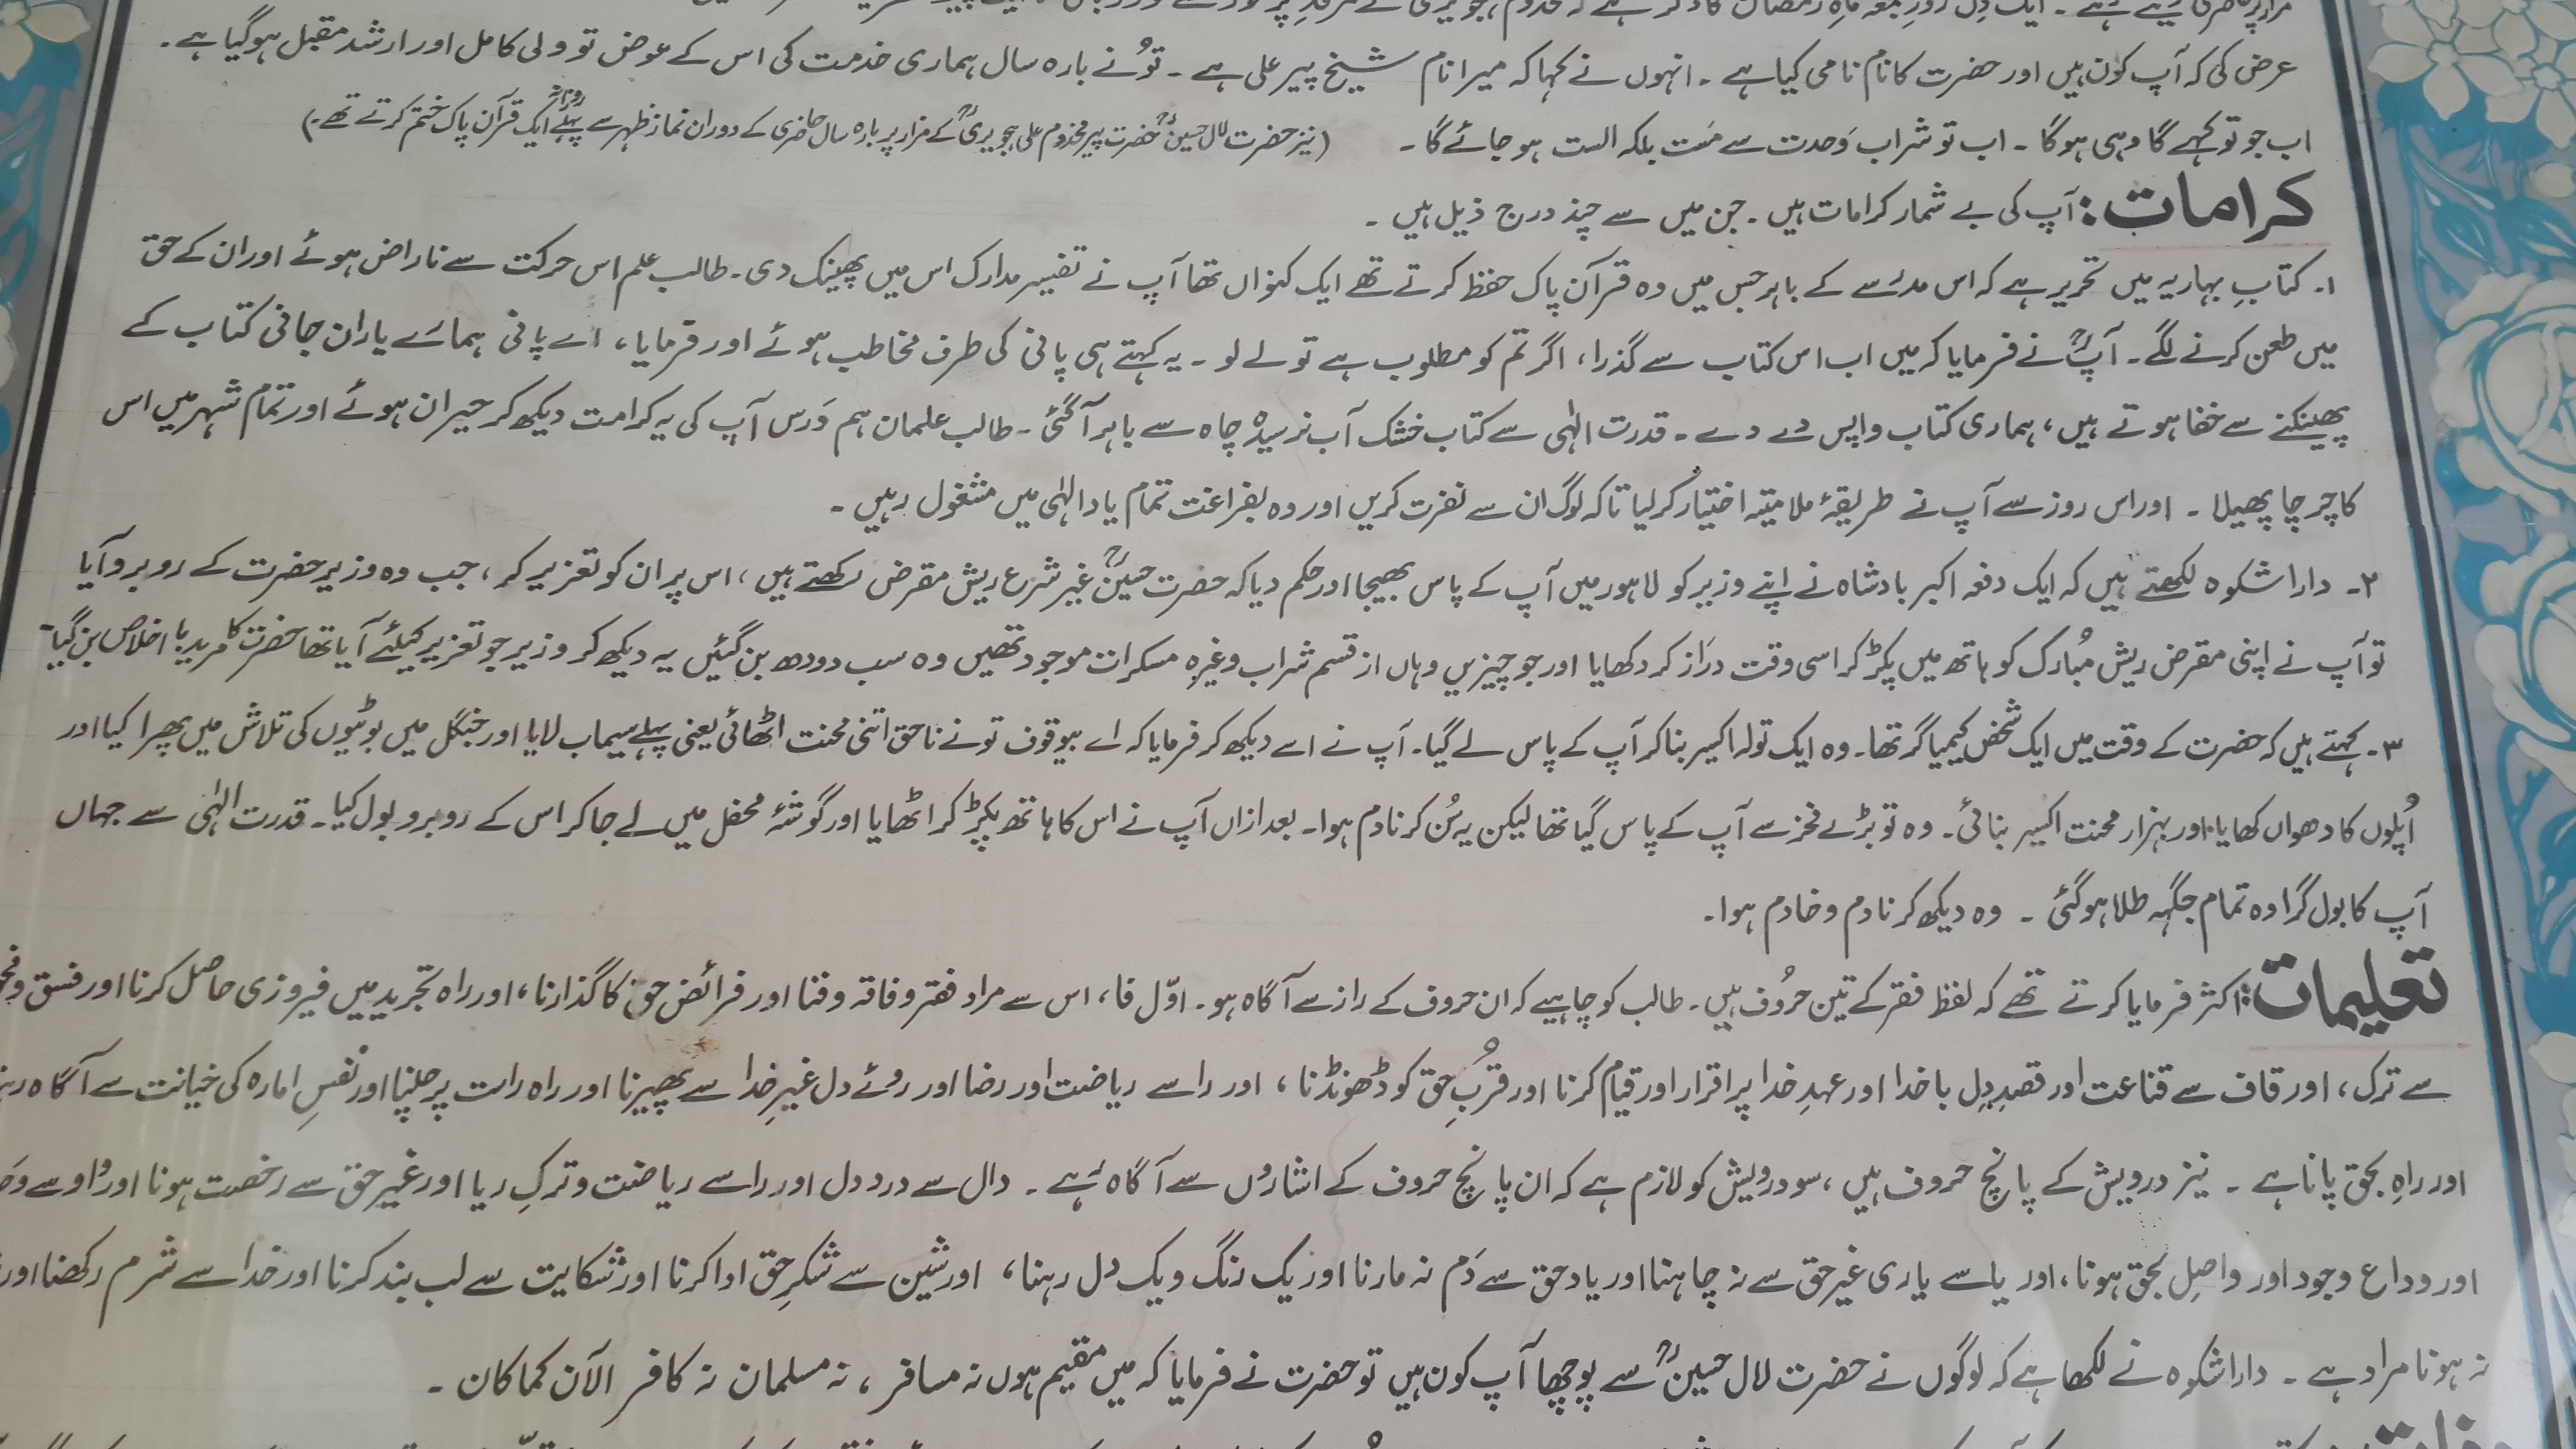 عرض کی کہ آپ کون ہیں اور حضرت کا نام نامی کیا ہے ۔ انہوں نے کہا کہ میرا نام شیخ پیر علی ہے ۔ تُو نے بارہ سال ہماری خدمت کی اس کے عوض تو ولی کامل اور ارشد مقبل ہوگیا ہے ۔
اب جو تو کہے گا وہی ہوگا ۔ اب تو شراب وَحدت سے مَست بلکہ الست ہو جائے گا ۔ (نیز حضرت لال حسینؒ حضرت پیر مخدوم علی ہجویریؒ کے مزار پر بارہ سال حاضری کے دوران نماز ظہر سے پہلے روزانہ ایک قرآن پاک ختم کرتے تھے ۔)
کرامات: آپ کی بے شمار کرامات ہیں ۔ جن میں سے چند درج ذیل ہیں ۔
۱۔ کتابِ بہاریہ میں تحریر ہے کہ اس مدرسے کے باہر جس میں وہ قرآن پاک حفظ کرتے تھے ایک کنواں تھا آپ نے تفسیر مدارک اس میں پھینک دی ۔ طالب علم اس حرکت سے ناراض ہوئے اور ان کے حق
میں طعن کرنے لگے ۔ آپؒ نے فرمایا کہ میں اب اس کتاب سے گذرا، اگر تم کو مطلوب ہے تو لے لو ۔ یہ کہتے ہی پانی کی طرف مخاطب ہوئے اور فرمایا، اے پانی ہمارے یاران جانی کتاب کے
پھینکنے سے خفا ہوتے ہیں، ہماری کتاب واپس دے دے ۔ قدرت الٰہی سے کتاب خشک آب نرسیدہ چاہ سے باہر آ گئی ۔ طالب علمان ہم دَرس آپ کی یہ کرامت دیکھ کر حیران ہوئے اور تمام شہر میں اس
کا چرچا پھیلا ۔ اور اس روز سے آپ نے طریقۂ ملامتیہ اختیار کر لیا تاکہ لوگ ان سے نفرت کریں اور وہ بفراغت تمام یاد الٰہی میں مشغول رہیں ۔
۲۔ دارا شکوہ لکھتے ہیں کہ ایک دفعہ اکبر بادشاہ نے اپنے وزیر کو لاہور میں آپ کے پاس بھیجا اور حکم دیا کہ حضرت حسینؒ غیر شرع ریش مقرض رکھتے ہیں، اس پر ان کو تعزیر کر، جب وہ وزیر حضرت کے روبرو آیا
تو آپ نے اپنی مقرض ریش مُبارک کو ہاتھ میں پکڑ کر اسی وقت دَراز کر دکھایا اور جو چیزیں وہاں از قسم شراب وغیرہ مسکرات موجود تھیں وہ سب دودھ بن گئیں یہ دیکھ کر وزیر جو تعزیر کیلئے آیا تھا حضرت کا مرید با اخلاص بن گیا ۔
۳۔ کہتے ہیں کہ حضرت کے وقت میں ایک شخص کیمیا گر تھا ۔ وہ ایک تولہ اکسیر بنا کر آپ کے پاس لے گیا ۔ آپ نے اسے دیکھ کر فرمایا کہ اے بیوقوف تو نے ناحق اتنی محنت اٹھائی یعنی پہلے سیماب لایا اور جنگل میں بوٹیوں کی تلاش میں پھرا کیا اور
اُپلوں کا دھواں کھایا اور بہزار محنت اکسیر بنائی ۔ وہ تو بڑے فخر سے آپ کے پاس گیا تھا لیکن یہ سُن کر نادم ہوا ۔ بعد ازاں آپ نے اس کا ہاتھ پکڑ کر اٹھایا اور گوشۂ محفل میں لے جا کر اس کے روبرو بول کیا ۔ قدرت الٰہی سے جہاں
آپ کا بول گرا وہ تمام جگہہ طلا ہوگئی ۔ وہ دیکھ کر نادم و خادم ہوا ۔
تعلیمات: اکثر فرمایا کرتے تھے کہ لفظ فقر کے تین حرُوف ہیں ۔ طالب کو چاہیے کہ ان حروف کے راز سے آگاہ ہو ۔ اوّل فا، اس سے مراد فقر و فاقہ و فنا اور فرائض حق کا گذارنا، اور راہ تجرید میں فیروزی حاصل کرنا اور فسق و
سے ترک، اور قاف سے قناعت اور قصدِ دِل باخدا اور عہدِ خدا پر اقرار اور قیام کرنا اور قُربِ حق کو ڈھونڈنا، اور را سے ریاضت اور رضا اور روئے دل غیرِ خدا سے پھیرنا اور راہ راست پر چلنا اور نفسِ امارہ کی خیانت سے آگاہ
اور راہِ بحق پانا ہے ۔ نیز درویش کے پانچ حروف ہیں، سو درویش کو لازم ہے کہ ان پانچ حروف کے اشاروں سے آگاہ رہے ۔ دال سے درد دل اور را سے ریاضت و ترکِ ریا اور غیر حق سے رخصت ہونا اور واو سے
اور وداع وجود اور واصِل بحق ہونا، اور یا سے یاری غیر حق سے نہ چاہنا اور یاد حق سے دَم نہ مارنا اور یک رنگ و یک دل رہنا، اور شین سے شکرِ حق ادا کرنا اور شکایت سے لب بند کرنا اور خدا سے شرم رکھنا اور
نہ ہونا مراد ہے ۔ دارا شکوہ نے لکھا ہے کہ لوگوں نے حضرت لال حسینؒ سے پوچھا آپ کون ہیں تو حضرت نے فرمایا کہ میں مقیم ہوں نہ مسافر، نہ مسلمان نہ کافر الآن کما کان ۔